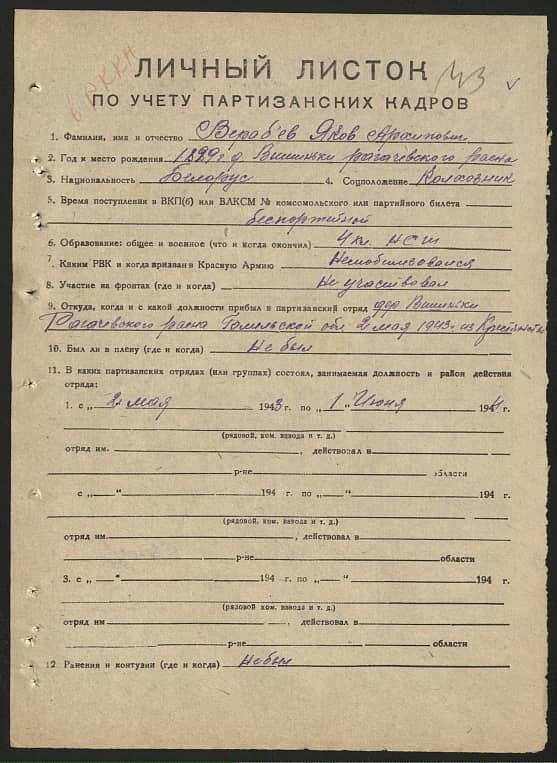 в РККА
43
ЛИЧНЫЙ ЛИСТОК
ПО УЧЕТУ ПАРТИЗАНСКИХ КАДРОВ
1. Фамилия, имя и отчество Вераб'ев Яков
2. Год и место рождения 1899 г д. Вишеньки рагачевского раена
3. Национальность Белорус 4. Соцположение Колхозник
5. Время поступления в ВКП(б) или ВЛКСМ № комсомольского или партийного билета
беспортейной
6. Образование: общее и военное (что и когда окончил) 4 кл. НСШ
7. Каким РВК и когда призван в Красную Армию Немобилизовался
8. Участие на фронтах (где и когда) Не участвовал
9. Откуда, когда и с какой должности прибыл в партизанский отряд дер. Вишеньки
Рагачевского раена Гомельской обл. 2 мая 1943 г. из
10. Был ли в плену (где и когда) Не был
11. В каких партизанских отрядах (или группах) состоял, занимаемая должность и район действия
отряда:
1. с „ 2 " мая 1943 г. по „ 1 " Июня 1944 г.
(рядовой, ком. взвода и т. д.)
отряд им. , действовал в
р-не области
с „ " 194 г. по „ " 194 г.
(рядовой, ком. взвода и т. д.)
отряд им. , действовал в
р-не области
3. с „ " 194 г. по „ " 194 г.
(рядовой ком. взвода и т. д.)
отряд им , действовал в
р-не области
12 Ранения и контузии (где и когда) Небыл